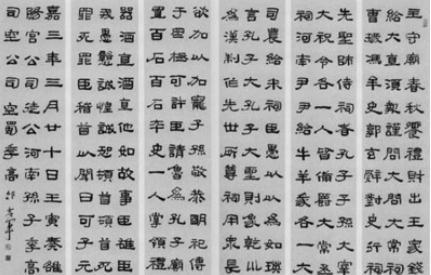 王守廟春秋饗禮財出王家錢
給大酒直須報謹問大常
曹掾馮牟史郭玄辭對史行祠
先聖師侍祠者孔子子孫大
大祝令各一人皆備爵大常丞
祠河南尹給牛羊豕各一大
司農給米祠臣愚以為如瑛
言孔子大聖則象乾
為漢制作先世所尊祠用眾
欲加以寵子孫敬恭明祀傳
于罔極可許臣請魯為孔子廟
置百石卒史一人掌領禮
器酒直他如故事臣雄臣
戒愚戇誠惶誠恐頓首死
罪死罪臣稽首以聞曰可子元
嘉三年三月廿十日壬寅奏雒
陽宮司徒公河南孫子季高
司空公司空蜀季高